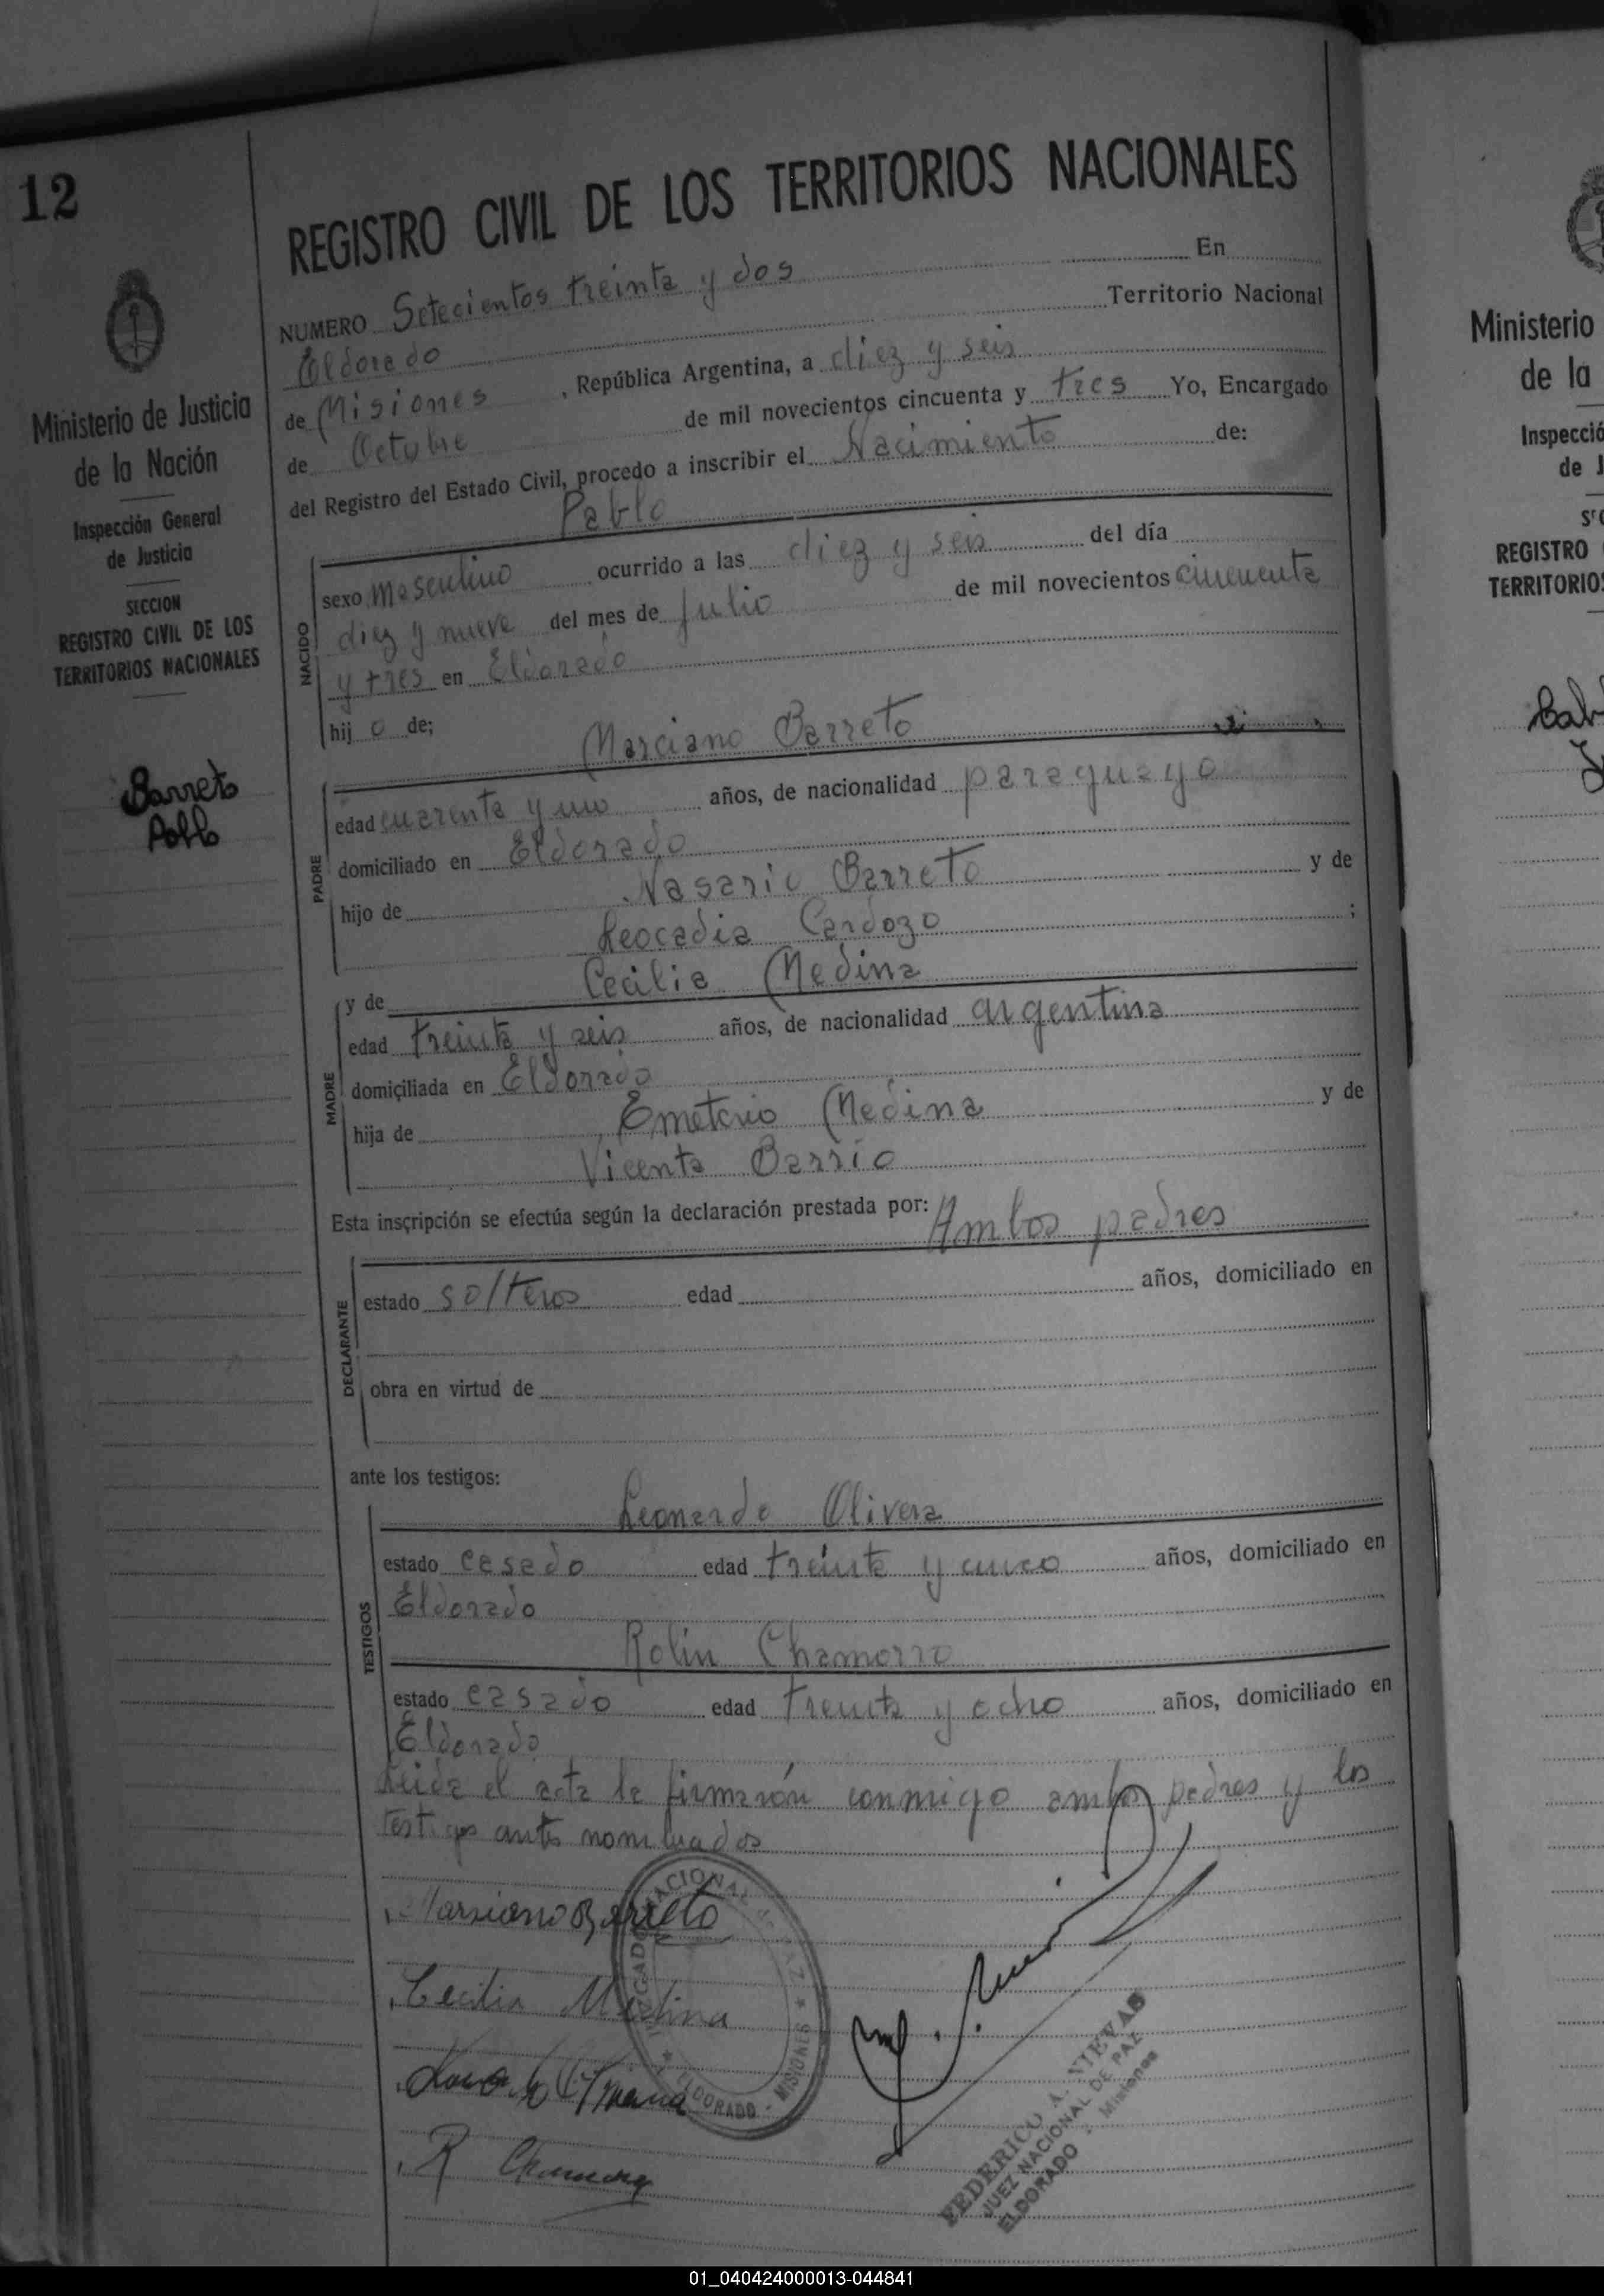 12
Ministerio de Justicia
de la Nación
Inspección General
de Justicia
SECCION
REGISTRO CIVIL DE LOS
TERRITORIOS NACIONALES
Barreto
Pablo
REGISTRO CIVIL DE LOS TERRITORIOS NACIONALES
NUMERO Setecientos treinta y dos En
Eldorado Territorio Nacional
de Misiones, República Argentina, a diez y seis
de Octubre de mil novecientos cincuenta y tres Yo, Encargado
del Registro del Estado Civil, procedo a inscribir el Nacimiento de:
Pablo
NACIDO
sexo masculino ocurrido a las diez y seis del día
diez y nueve del mes de Julio de mil novecientos cincuenta
y tres en Eldorado
hijo de;
Marciano Barreto
PADRE
edad cuarenta y uno años, de nacionalidad paraguayo
domiciliado en Eldorado
hijo de Nasario Barreto y de
Leocadia Cardozo ;
MADRE
y de Cecilia Medina
edad treinta y seis años, de nacionalidad argentina
domiciliada en Eldorado
hija de Emeterio Medina y de
Vicenta Barrio
Esta inscripción se efectúa según la declaración prestada por: Ambos padres
DECLARANTE
estado solteros edad años, domiciliado en
obra en virtud de
ante los testigos:
Leonardo Olivera
TESTIGOS
estado casado edad treinta y cinco años, domiciliado en
Eldorado
Rolin Chamorro
estado casado edad treinta y ocho años, domiciliado en
Eldorado
Leida el acta la firmarón conmigo ambos padres y los
testigos antes nominados
Marsiano Barreto
Cecilia Medina
R Chamorro
JUZGADO NACIONAL DE PAZ
ELDORADO - MISIONES
FEDERICO A. NIEVAS
JUEZ NACIONAL DE PAZ
ELDORADO - Misiones
Ministerio
de la
REGISTRO
01_040424000013-044841